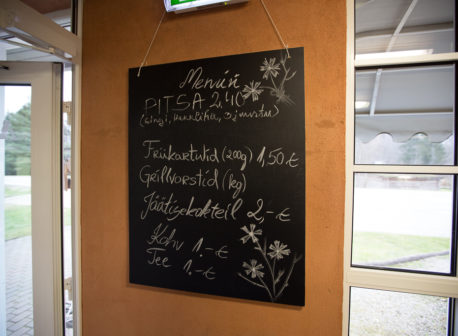 Menüü
PITSA 2.-€
(singi,
Friikartulid (200g) 1,50 €
Grillvorstid (kg)
Jäätisekokteil 2,-€
Kohv 1.-€
Tee 1.-€